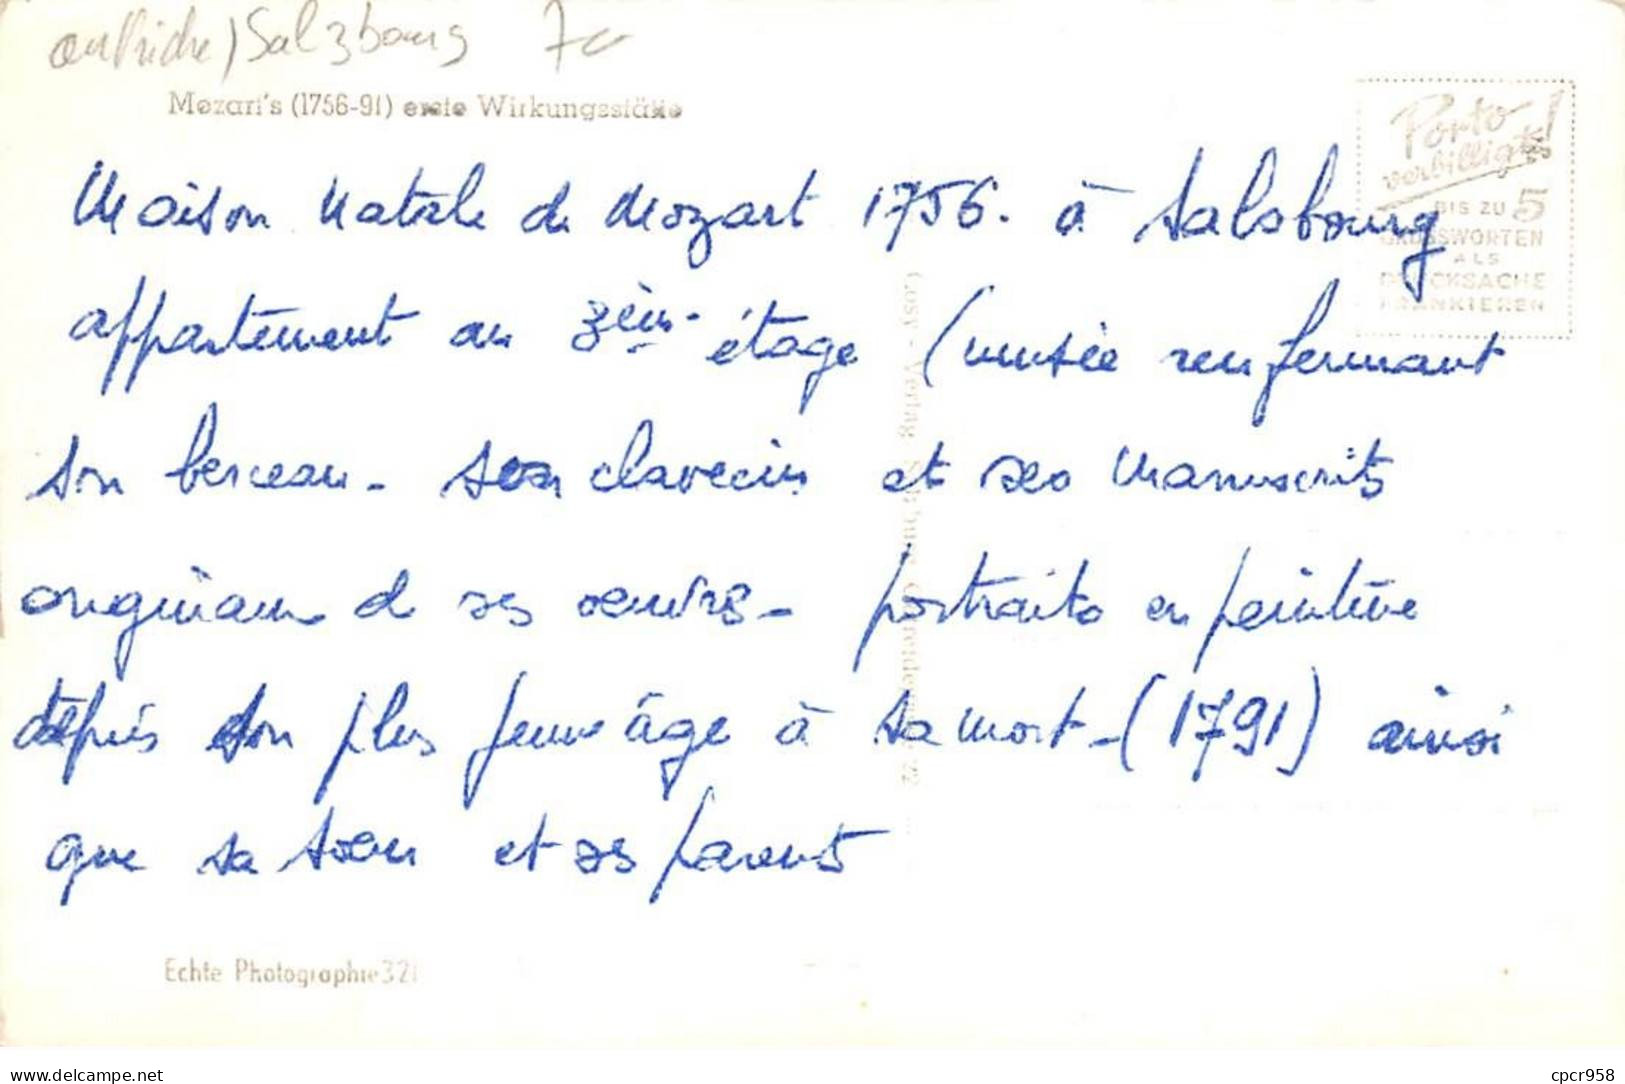 autriche / Salzbourg 7
Mozart's (1756-91) erste Wirkungsstätte
Porto
verbilligt!
BIS ZU 5
GRUSSWORTEN
ALS
DRUCKSACHE
FRANKIEREN
Maison Natale de Mozart 1756. à Salsbourg
appartement au 3èm. étage (musée renfermant
son berceau - son clavecin et ses manuscrits
originaux de ses oeuvres - portraits en peinture
depuis son plus jeune âge à sa mort - (1791) ainsi
que sa soeur et ses parents
Cosy - Verlag Salzburg 22
Echte Photographie 321
delcampe.net
cpcr958